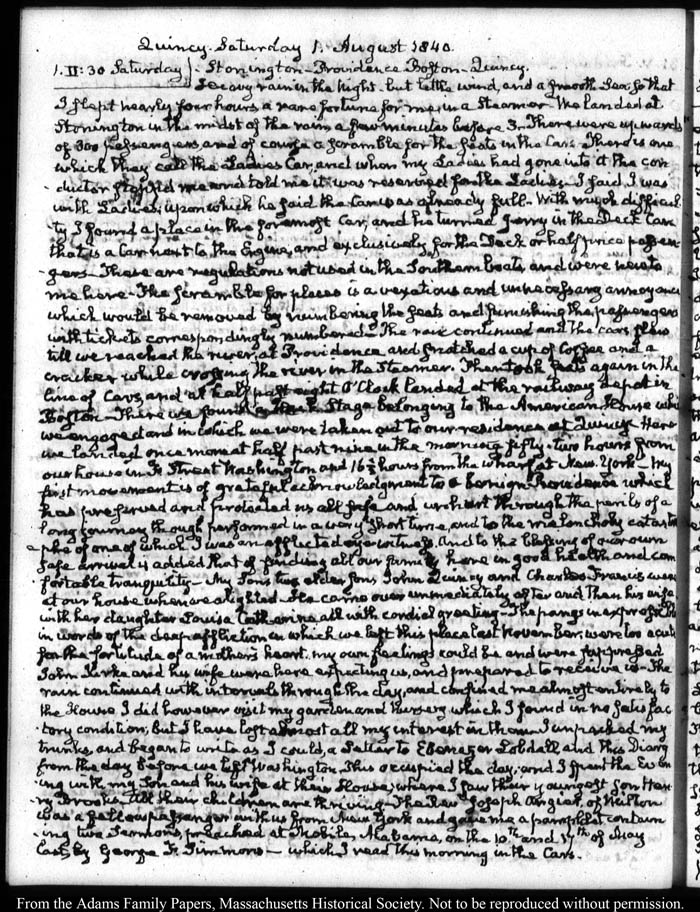 Quincy. Saturday 1. August 1840.
1. II:30 Saturday } Stonington–Providence Boston–Quincy.
Heavy rain in the Night, but little wind, and a smooth Sea, so that
I slept nearly four hours a rare fortune for me, in a Steamer. We landed at
Stonington in the midst of the rain a few minutes before 3. There were upwards
of 300 passengers and of course a scramble for the seats in the Cars. There is one
which they call the Ladies Car, and when my Ladies had gone into it the con
ductor stopped me and told me it was reserved for the Ladies. I said I was
with Ladies; upon which he said the Car was already full. With much difficul
ty I found a place in the foremost Car, and he turned Jerry in the Deck Car
that is a Car next to the Engine, and exclusively for the Deck or half price passen
gers– These are regulations not used in the Southern boats and were new to
me here– The scramble for places is a vexatious and unnecessary annoyance
which would be removed by numbering the seats and furnishing the passengers
with tickets correspondingly numbered– The rain continued and the cars flew
till we reached the river, at Providence and snatched a cup of Coffee and a
cracker while crossing the river in the Steamer. Then took seats again in the
line of Cars, and at half past eight O'Clock landed at the railway depot in
Boston– There we found a Stage belonging to the American House
we engaged and in which we were taken out to our residence at Quincy. Here
we landed once more at half past nine in the morning fifty-two hours from
our house in F. Street Washington and 16½ hours from the wharf at New-York– My
first movement is of grateful acknowledgment to a benign Providence which
has preserved and protected us all safe and unhurt through the perils of a
long journey though performed in a very short time, and to the melancholy catastro
phe of one of which I was an afflicted eye witness. And to the blessing of our own
safe arrival is added that of finding all our family here in good health and com
fortable tranquility– My Sons two elder sons, John Quincy and Charles Francis were
at our house when we alighted. He came over immediately after and then his wife
with her daughter Louisa Catherine all with cordial greeting– The pangs
in words of the deep affliction in which we left this place last November, were too acute
for the fortitude of a mother's heart. my own feelings could be and were suppressed
John Kirke and his wife were here expecting us, and prepared to receive us– The
rain continued with intervals through the day, and confined me almost entirely to
the House. I did however visit my garden and nursery which I found in no satisfac
tory condition; but I have lost almost all my interest in them. I unpacked my
trunks, and began to write as I could, a Letter to Ebenezer and this Diary
from the day before we left Washington. This occupied the day; and I spent the Even
ing with my Son and his wife at their House; where I saw their youngest son Hen
ry Brooks. All their children are thriving– The Rev.d Joseph Angier, of Milton
was a fellow passenger with us from New York and gave me a pamphlet contain
ing two Sermons, preached at Mobile, Alabama, on the 10th and 17th of May
last, by George F. Simmons– which I read this morning in the Cars.
From the Adams Family Papers, Massachusetts Historical Society. Not to be reproduced without permission.